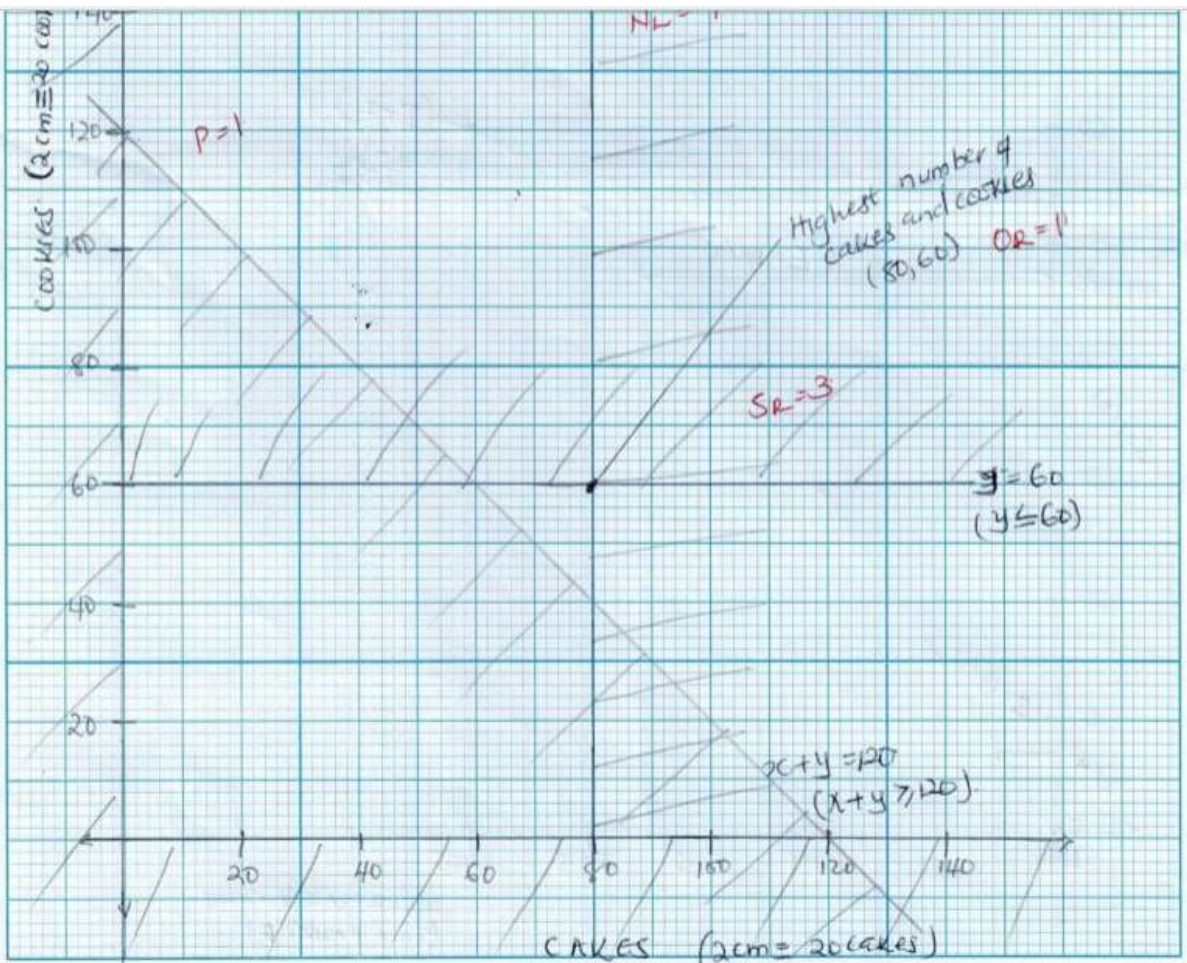 140
COOKIES (2cm≡20 coo
P=1
120
100
80
60
40
20
Highest number of
cakes and cookies
(80,60) OR=1
SR=3
y=60
(y≤60)
x+y=120
(x+y≥120)
20 40 60 80 100 120 140
CAKES (2cm≡20cakes)